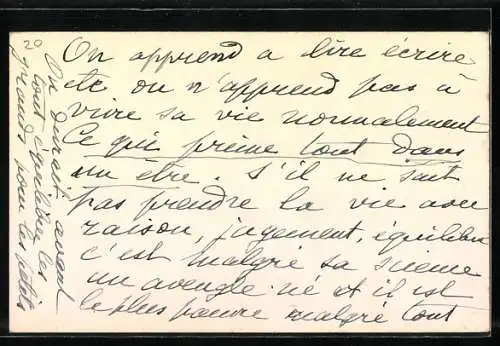 On apprend a lire écrire
etc on n'apprend pas à
vivre sa vie normalement
Ce qui prime tout dans
un être. S'il ne sait
pas prendre la vie avec
raison, jugement, équilibre
c'est malgré sa science
un aveugle né et il est
le plus pauvre malgré tout
20
On devrait avant
tout équilibrer les
grands pour les petits